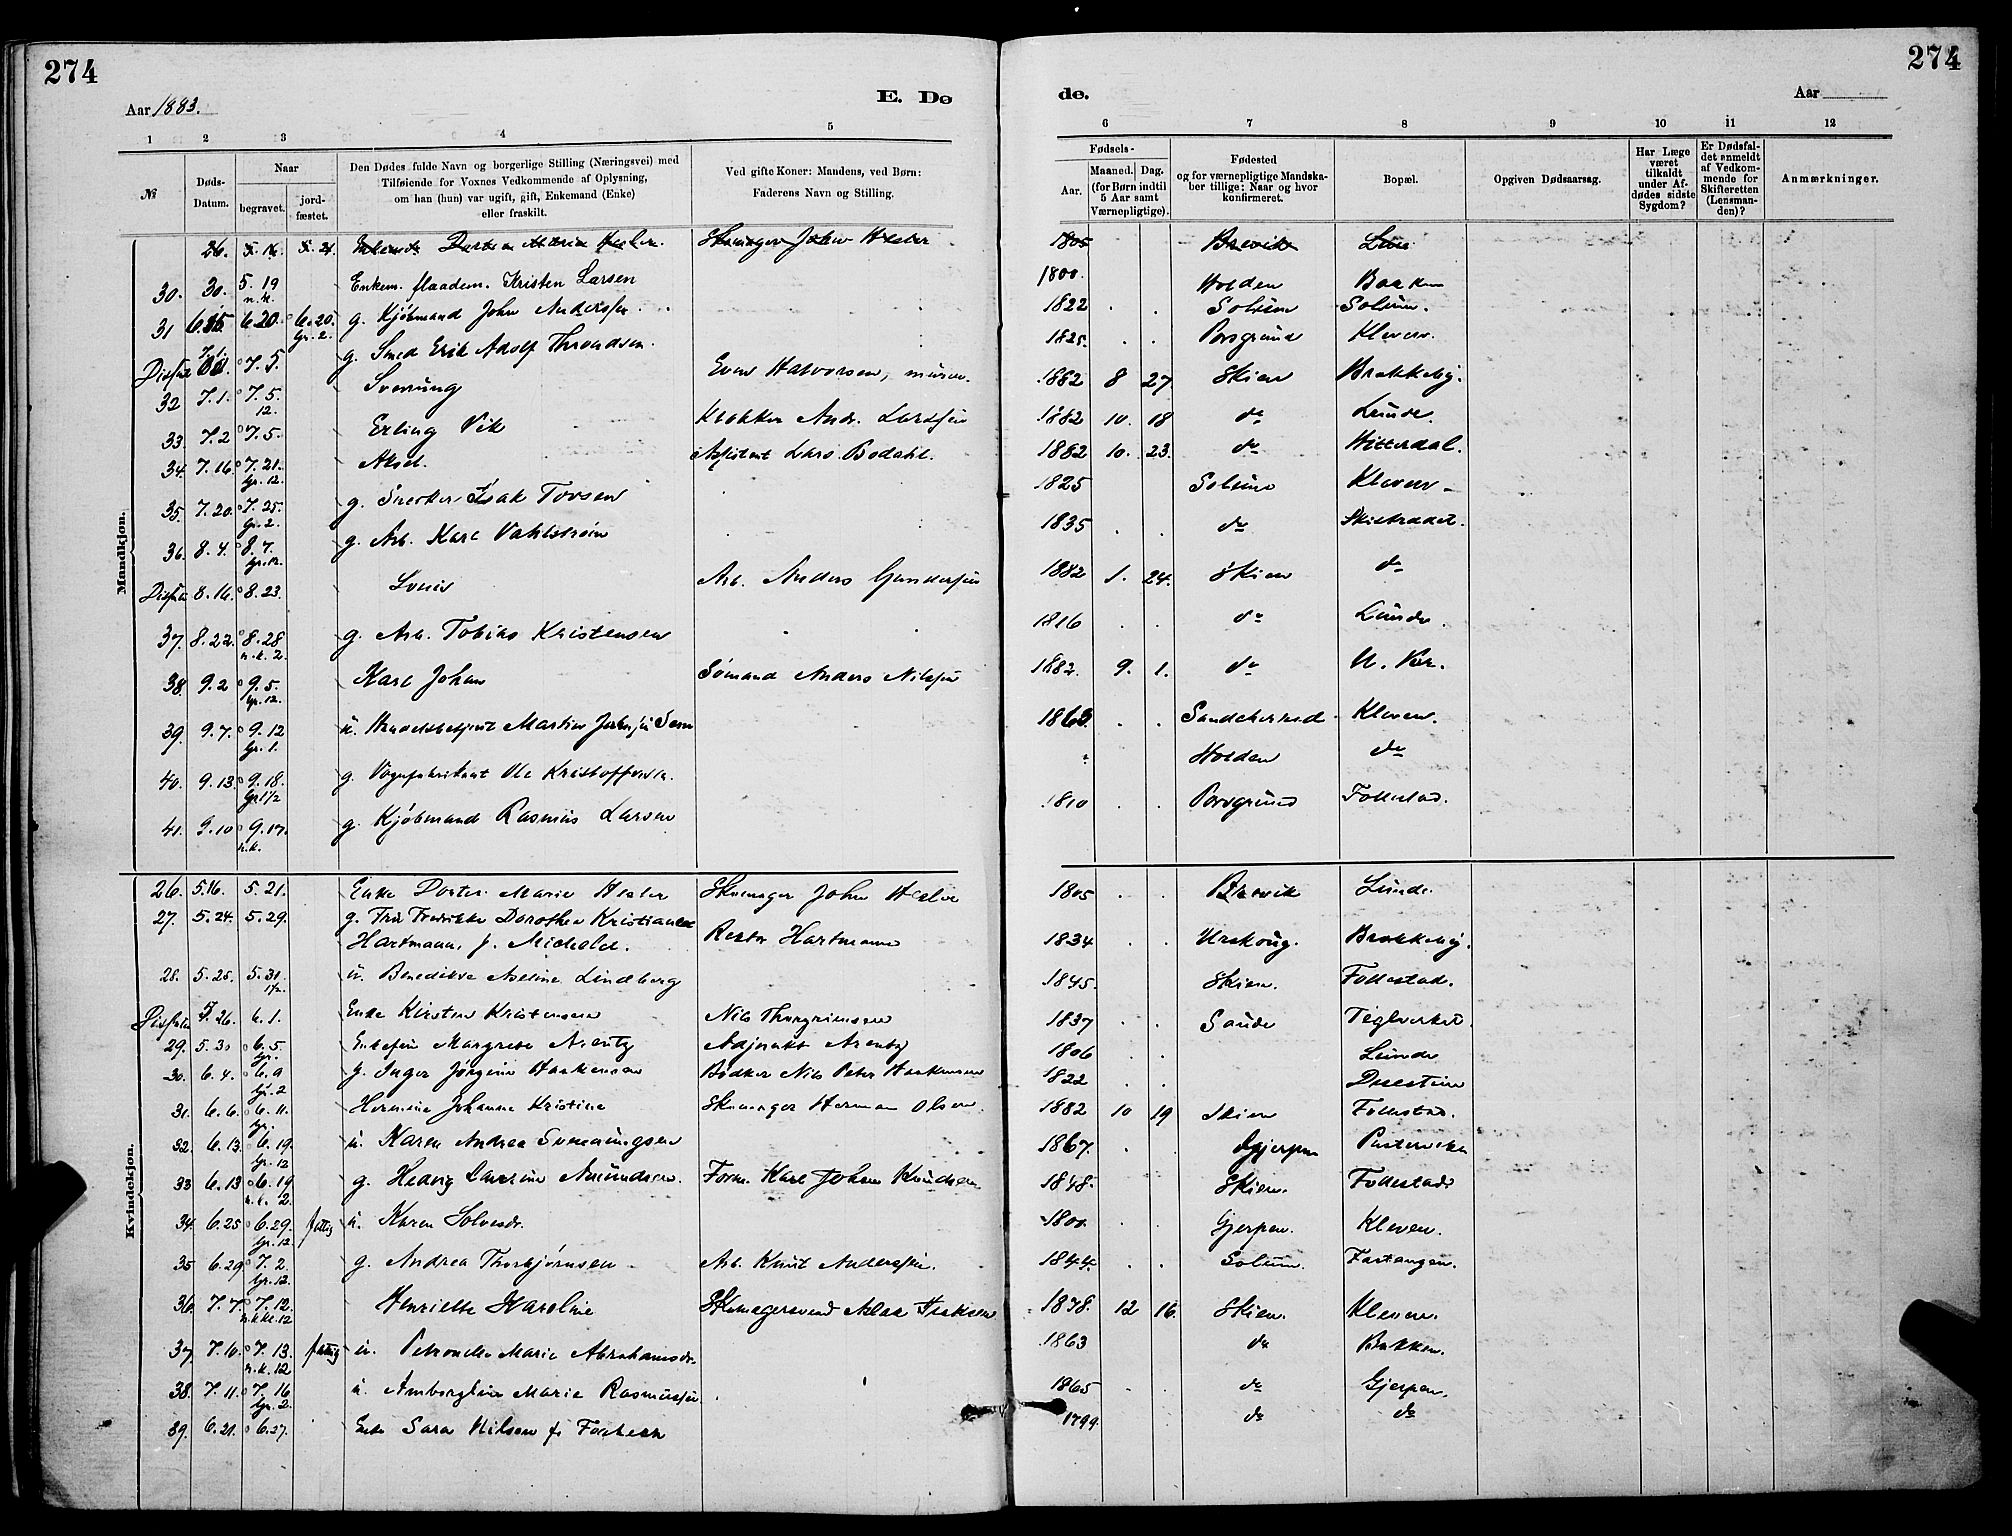 274
274
Aar 1883.
E. Dø
de.
Aar
1 2 3 4 5 6 7 8 9 10 11 12
№
Døds-Datum.
Naar
begravet.
jord-fæstet.
Den Dødes fulde Navn og borgerlige Stilling (Næringsvei) med
Tilføiende for Voxnes Vedkommende af Oplysning,
om han (hun) var ugift, gift, Enkemand (Enke)
eller fraskilt.
Ved gifte Koner: Mandens, ved Børn:
Faderens Navn og Stilling.
Fødsels-
Aar.
Maaned. Dag.
(for Børn indtil
5 Aar samt
Værnepligtige).
Fødested
og for værnepligtige Mandska-
ber tillige: Naar og hvor
konfirmeret.
Bopæl.
Opgiven Dødsaarsag.
Har Læge
været
tilkaldt
under Af-
dødes sidste
Sygdom?
Er Dødsfal-
det anmeldt
af Vedkom-
mende for
Skifteretten
(Lensman-
den)?
Anmærkninger.
Mandkjøn.
26. 1805 Brevik
30. 30. 5.19 n.k. Enkem. flaadem. Kristen Larsen 1800. Holden Bakken
31 6.15 6.20 6.20. gr.2. g. Kjøbmand John Anderssen 1822 Solum Solum.
7.5. g. Smed Erik Adolf Throndsen. 1825. Porsgrund Kleven.
32 7.1. 7.5. 12. Sverrung Even Halvorsen, murer. 1882 8 27 Skien Brekkeby.
33. 7.2 7.5. Erling Vik Andr. 1882 10. 18 do Lunde.
34. 7.16. 7.21. gr.12. Aksel. Assistent Lars Bodahl. 1882 10. 23. do Hitterdal.
35. 7.20. 7.25. gr.2. g. Snecker Isak Torsen 1825 Solum Kleven
36. 8.4. 8.7. gr.12. g. Arb. Karl Vahlstrøm 1835 do
8.16. 8.23. Louis Arb. Anders Gundersen 1882 1. 24. Skien do
37. 8.22. 8.28. n.k.2. g. Arb. Tobias Kristensen 1816 do Lunde.
38. 9.2 9.5. gr.12. Karl Johan Sømand Anders Nilssen 1882. 9. 1. do
39. 9.7. 9.12 gr.1. u. Martin 1863. Sandeherred Kleven.
40. 9.13. 9.18. gr.1½ g. Vognfabrikant Ole Kristoffersen. Holden do
41. 9.10 9.17. n.k. g. Kjøbmand Rasmus Larsen 1810 Porsgrund Follestad.
Kvindekjøn.
26. 5.16. 5.21. Enke Dorthe Marie Skomager John 1805 Brevik Lunde.
27. 5.24. 5.29. g. Fru Fredrikke Dorothea Kristiane
Hartmann, f. Michelet. Rektor Hartmann 1834 Urskoug. Brekkeby.
28. 5.25. 5.31. 1½. u. Benedikte Aseline Lindberg 1845. Skien. Follestad.
5.26. 6.1. Enke Kirsten Kristensen Nils Thorgrimsen 1837 Saude Teglverket.
29. 5.30 6.5. gr. Enkefru Margrete Arentz Adjunkt Arentz 1806 Lunde
30. 6.4. 6.9 gr.2 g. Inger Jørgine Haakensen Bødker Nils Peter Haakensen 1822
31. 6.6. 6.11. gr. Hermine Johanne Kristine Skomager Herman Olsen. 1882 10 19 Skien Follestad.
32. 6.13. 6.19 gr.12 u. Karen Andrea 1867. Gjerpen
33 6.13 6.19 2. g. Hedvig Laurine Amundsen. Form. Karl Johan Knudsen 1848. Skien. Follestad
34. 6.25 6.29. gr.12 fattig u. Karen Solvesdr. 1800. Gjerpen. Kleven.
35 6.29 7.2. gr.12. g. Andrea Thorbjørnsen Arb. Knut Anderssen. 1844. Solum.
36. 7.7. 7.12. n.k. kl.12 Henriette Karoline Skomagersvend 1878. 12 16. Skien. Kleven.
37. 7.10. 7.13. n.k. 12 fattig u. Petronelle Marie Abrahamsdr. 1863 do Bakken.
38. 7.11. 7.16 gr.2. u. Marie Rasmussen 1865 do Gjerpen.
39. 6.21. 6.27. Enke Sara Nilsen f. 1799. do do